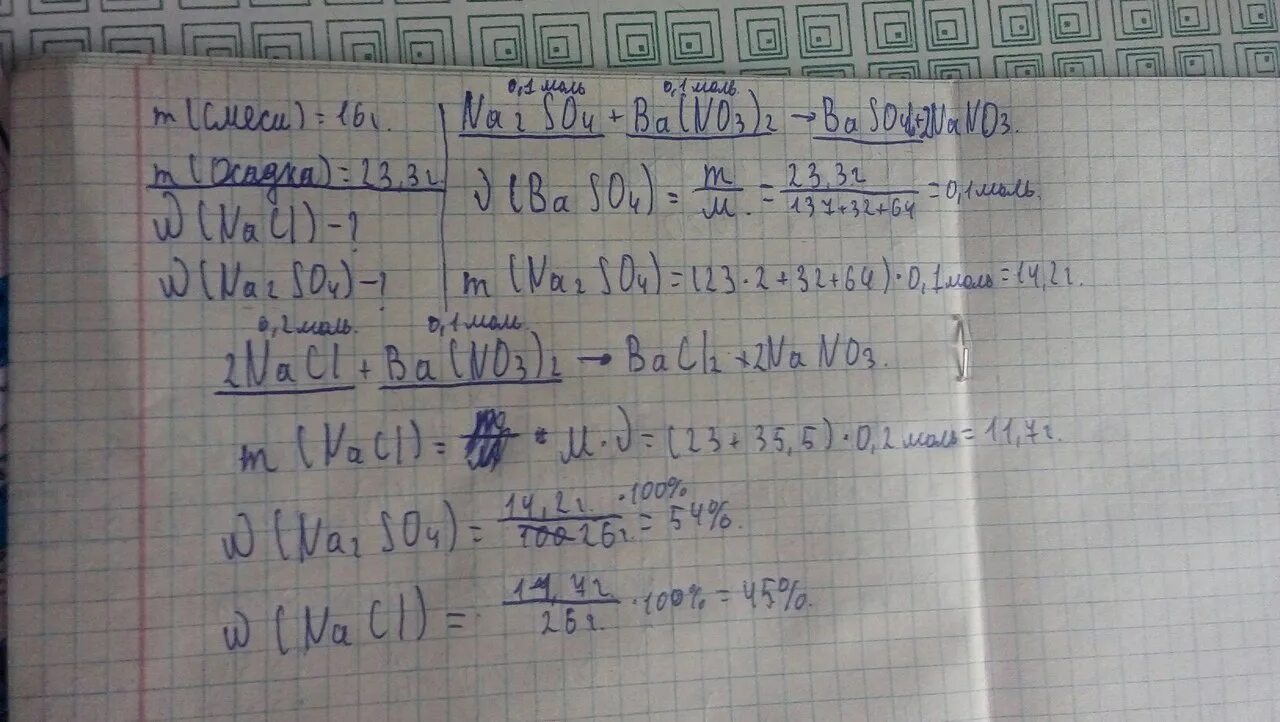 m (смеси) = 16г.
m (осадка) = 23,3г
ω (NaCl) - ?
ω (Na2SO4) - ?
0,1 моль 0,1 моль.
Na2SO4 + Ba(NO3)2 → BaSO4 + 2NaNO3.
ν (BaSO4) = m/M = 23,3г/137+32+64 = 0,1 моль.
m (Na2SO4) = (23·2+32+64)·0,1 моль = 14,2г.
0,2 моль. 0,1 моль.
2NaCl + Ba(NO3)2 → BaCl2 + 2NaNO3.
m (NaCl) = M·ν = (23+35,5)·0,2 моль = 11,7г.
ω (Na2SO4) = 14,2г·100%/26г = 54%.
ω (NaCl) = 11,7г/26г·100% = 45%.